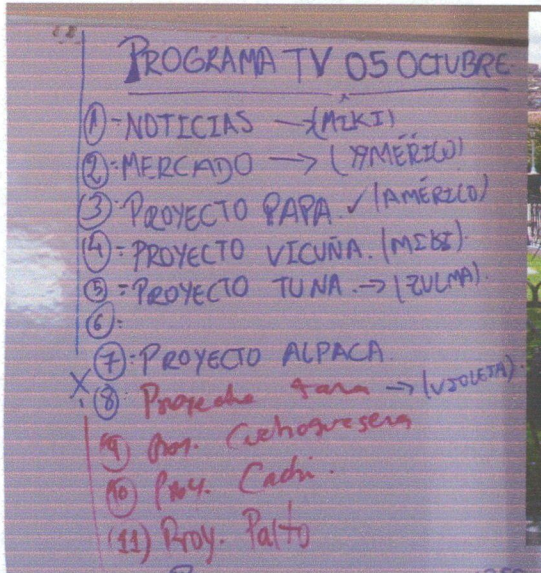 PROGRAMA TV 05 OCTUBRE
① - NOTICIAS → (MIKI)
② - MERCADO → (AMÉRICO)
③ - PROYECTO PAPA. ✓ (AMÉRICO)
④ = PROYECTO VICUÑA. (MIKI).
⑤ = PROYECTO TUNA. → (ZULMA)
⑥ =
⑦ = PROYECTO ALPACA.
X ⑧ Proyecto tara → (VIOLETA).
⑨ Proy. Cuchoquesera
⑩ Proy. Cachi.
(11) Proy. Palto